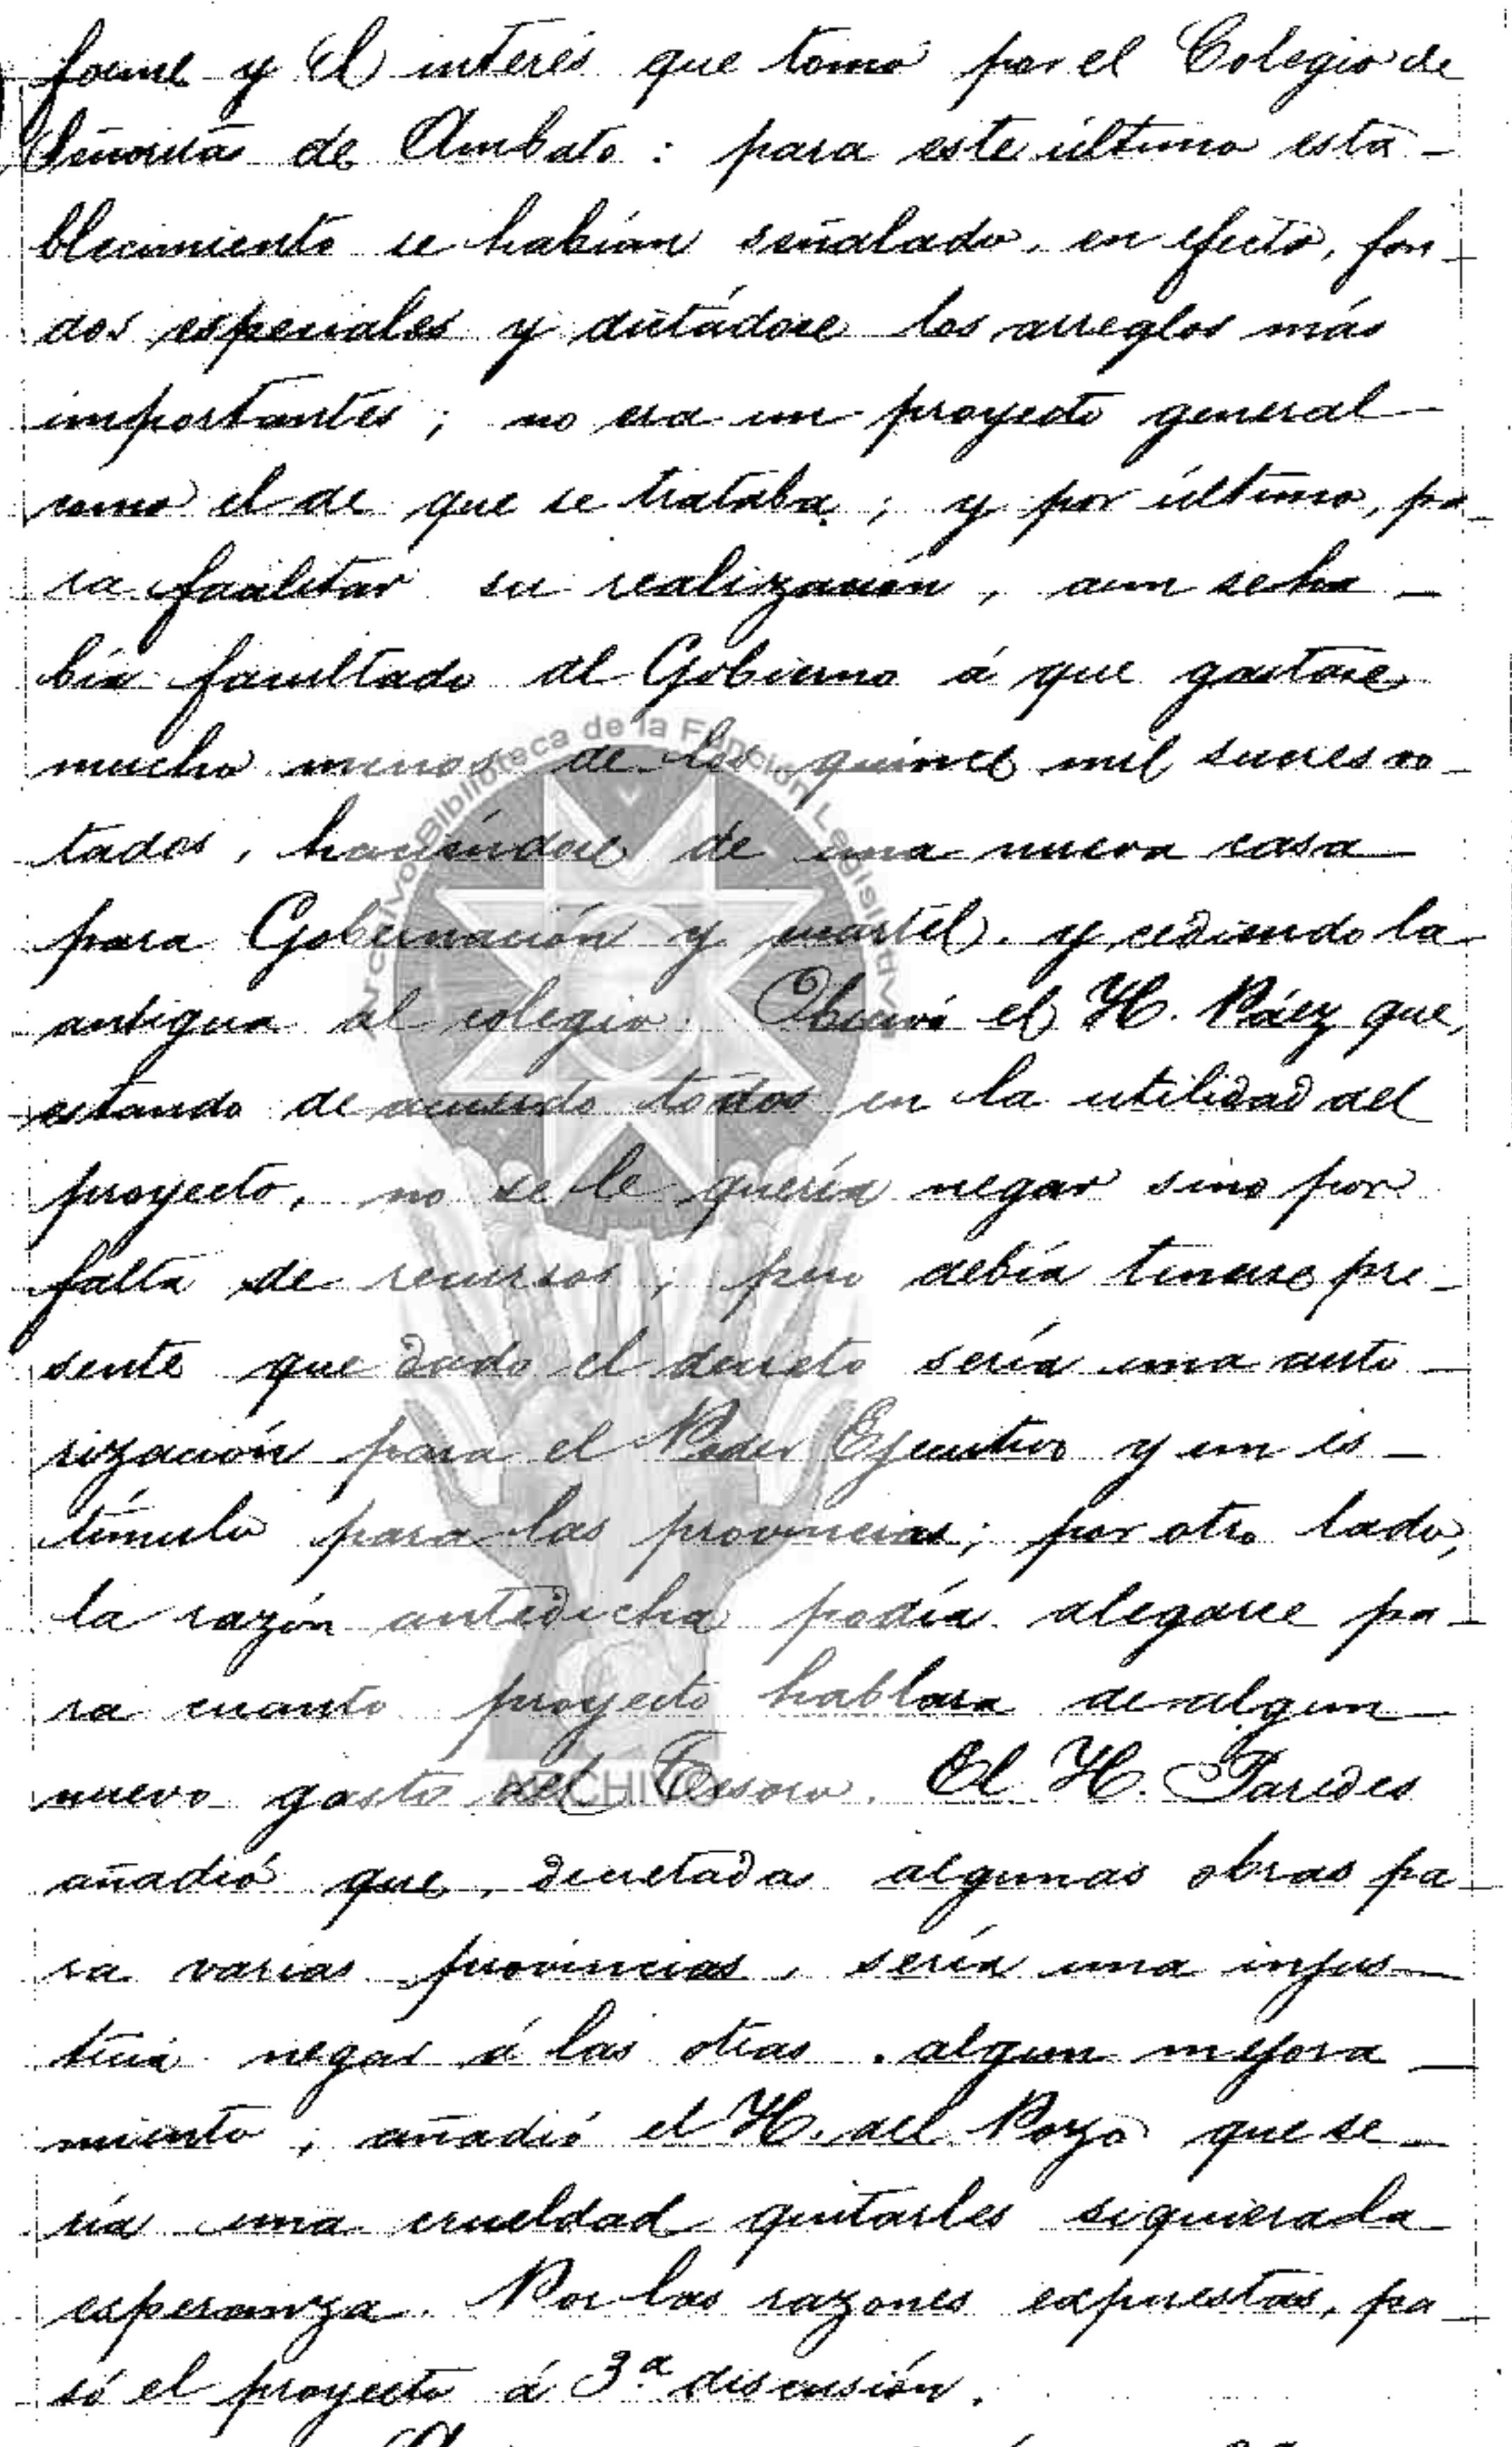 forme y el interés que tomó por el Colegio de
Señoritas de Ambato: para este último esta-
blecimiento se habían señalado, en efecto, fon-
dos especiales y dictádose los arreglos más
importantes; no era un proyecto general
como el de que se trataba; y por último, pa-
ra facilitar su realización, aun se ha-
bía facultado al Gobierno á que gastase
mucho menos de los quince mil sucres vo-
tados, haciéndose de una nueva casa
para Gobernación y cuartel, y cediendo la
antigua al colegio. Observó el H. Páez que,
estando de acuerdo todos en la utilidad del
proyecto, no se le quería negar sino por
falta de recursos; pero debía tenerse pre-
sente que dado el decreto sería una auto-
rización para el Poder Ejecutivo y un es-
tímulo para las provincias; por otro lado,
la razón antedicha podía alegarse pa-
ra cuanto proyecto hablara de algun
nuevo gasto del Tesoro. El H. Paredes
añadió que, decretadas algunas obras pa-
ra varias provincias, sería una injus-
ticia negar á las otras algun mejora-
miento; añadió el H. del Pozo que se-
ría una crueldad quitarles siquiera la
esperanza. Por las razones expuestas, pa-
só el proyecto á 3.ª discusión.
Archivo Biblioteca de la Función Legislativa
ARCHIVO